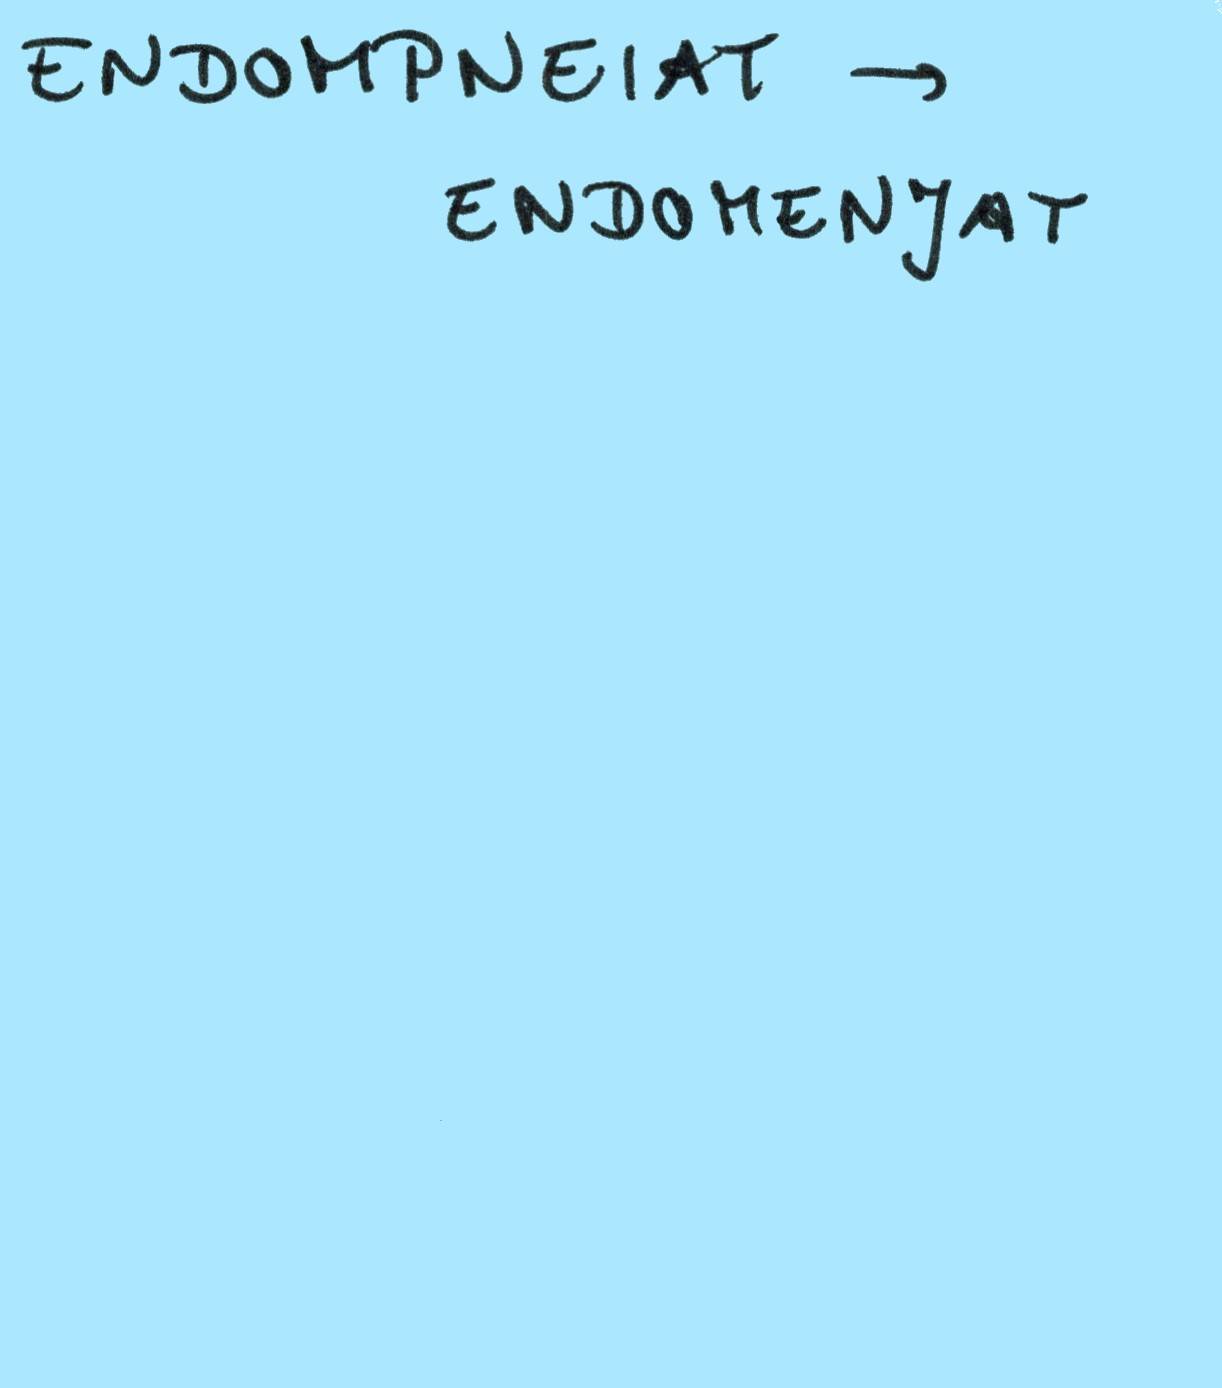 ENDOMPNEIAT →
ENDOMENJAT